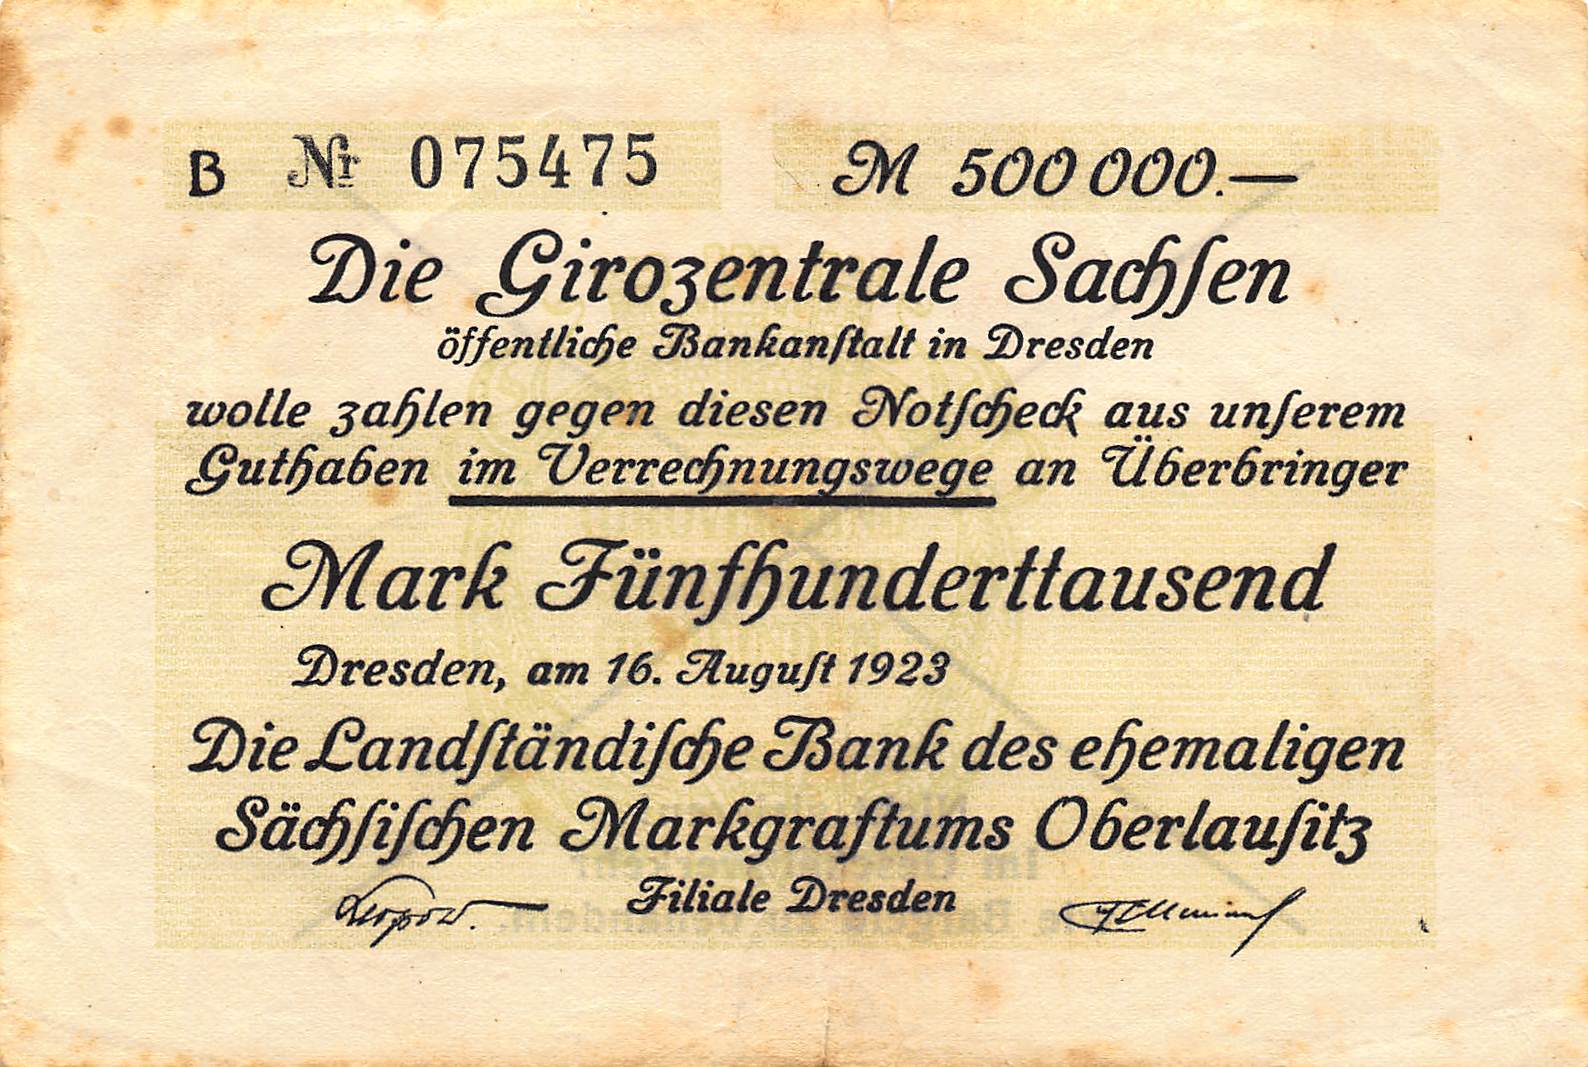 B Nr 075475 M 500 000.—
Die Girozentrale Sachſen
öffentliche Bankanſtalt in Dresden
wolle zahlen gegen diesen Notſcheck aus unſerem
Guthaben im Verrechnungswege an Überbringer
Mark Fünfhunderttausend
Dresden, am 16. Auguſt 1923
Die Landſtändiſche Bank des ehemaligen
Sächſiſchen Markgraftums Oberlauſitz
Filiale Dresden